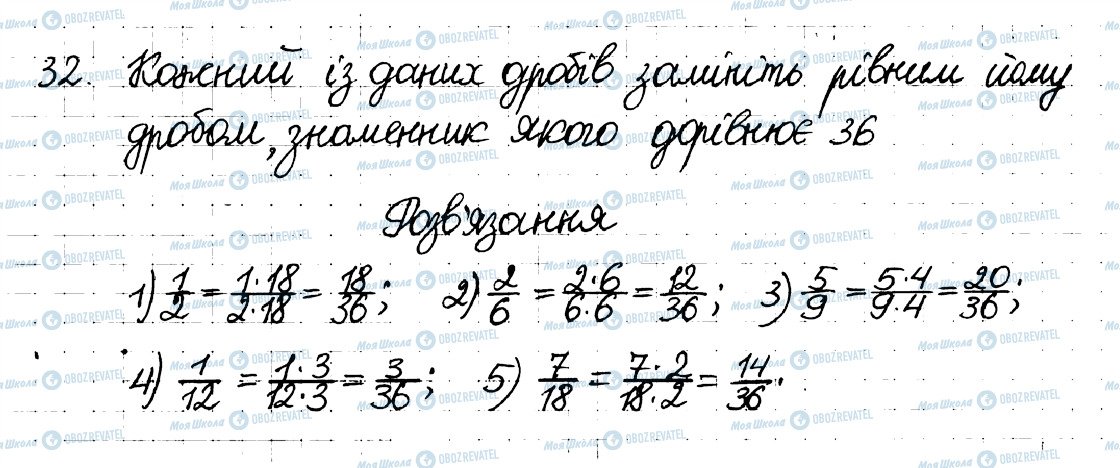 32. Кожний із даних дробів замініть рівним йому
дробом, знаменник якого дорівнює 36
Розв'язання
1) 1/2 = 1·18/2·18 = 18/36; 2) 2/6 = 2·6/6·6 = 12/36; 3) 5/9 = 5·4/9·4 = 20/36;
4) 1/12 = 1·3/12·3 = 3/36; 5) 7/18 = 7·2/18·2 = 14/36.
Моя Школа OBOZREVATEL